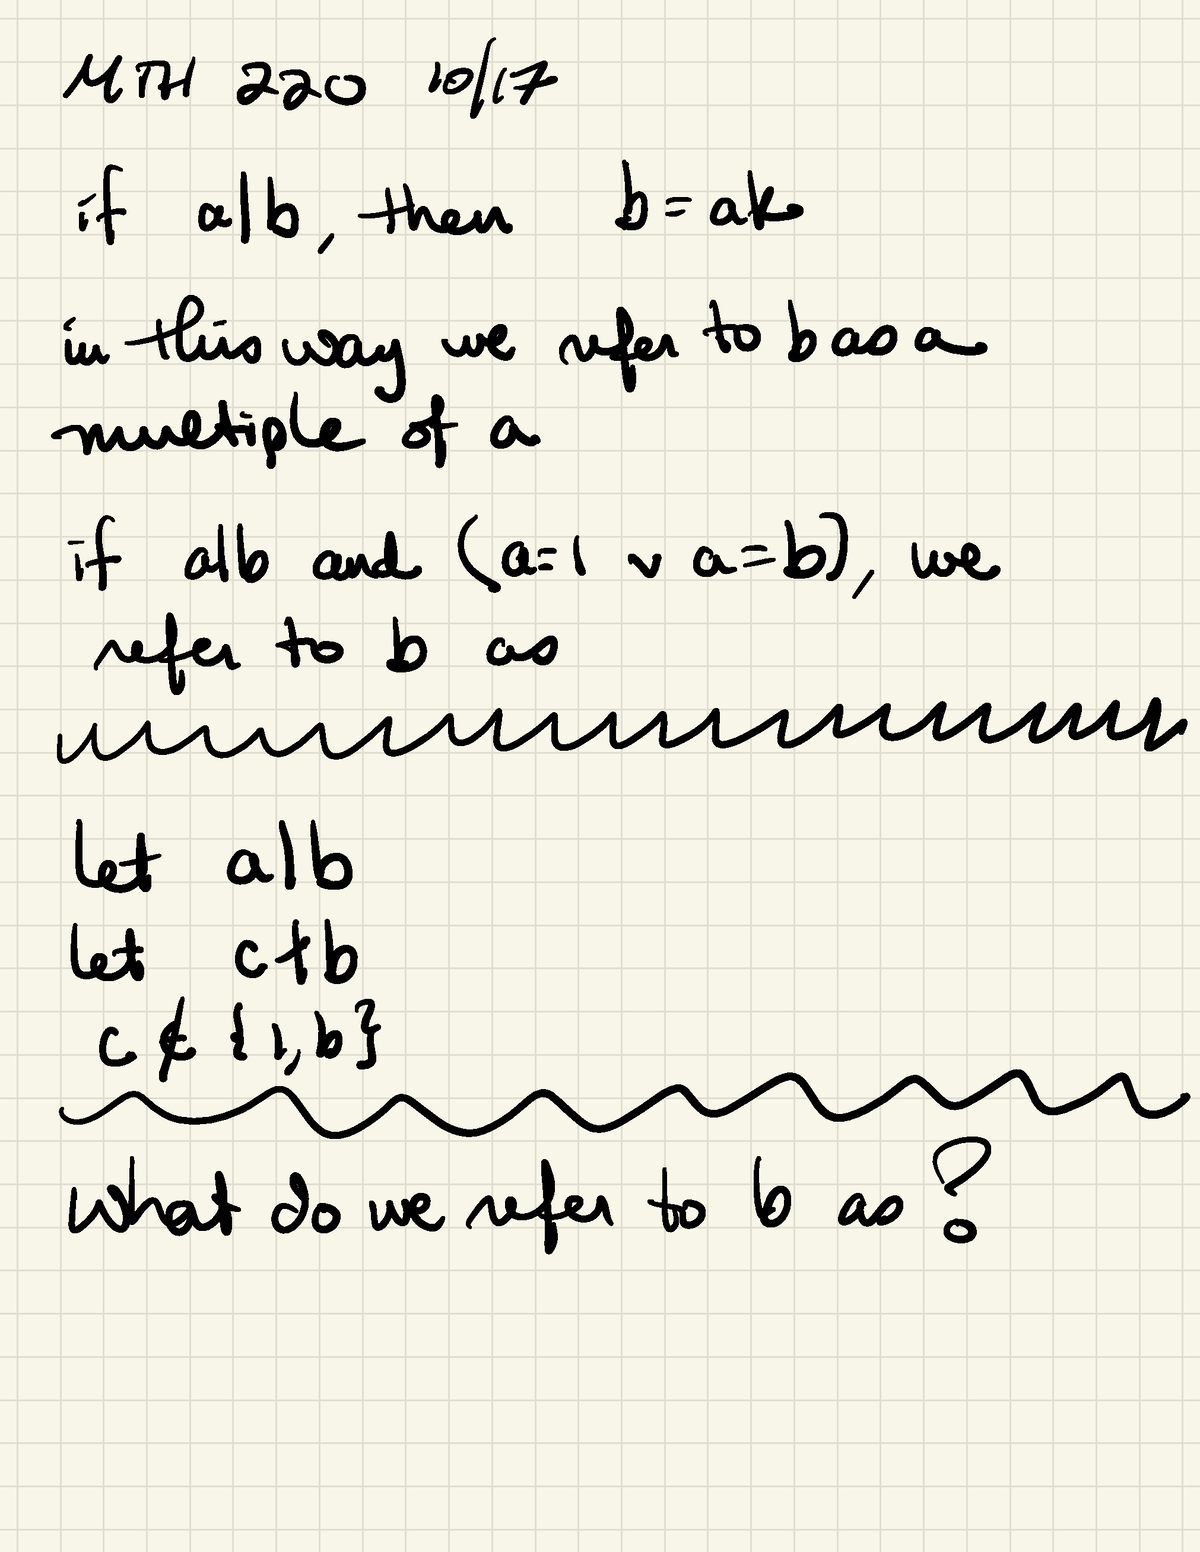 MTH 220 10/17
if a|b, then b = ak
in this way we refer to b as a
multiple of a
if a|b and (a=1 ∨ a=b), we
refer to b as
let a|b
let c∤b
c ∉ {1,b}
What do we refer to b as?